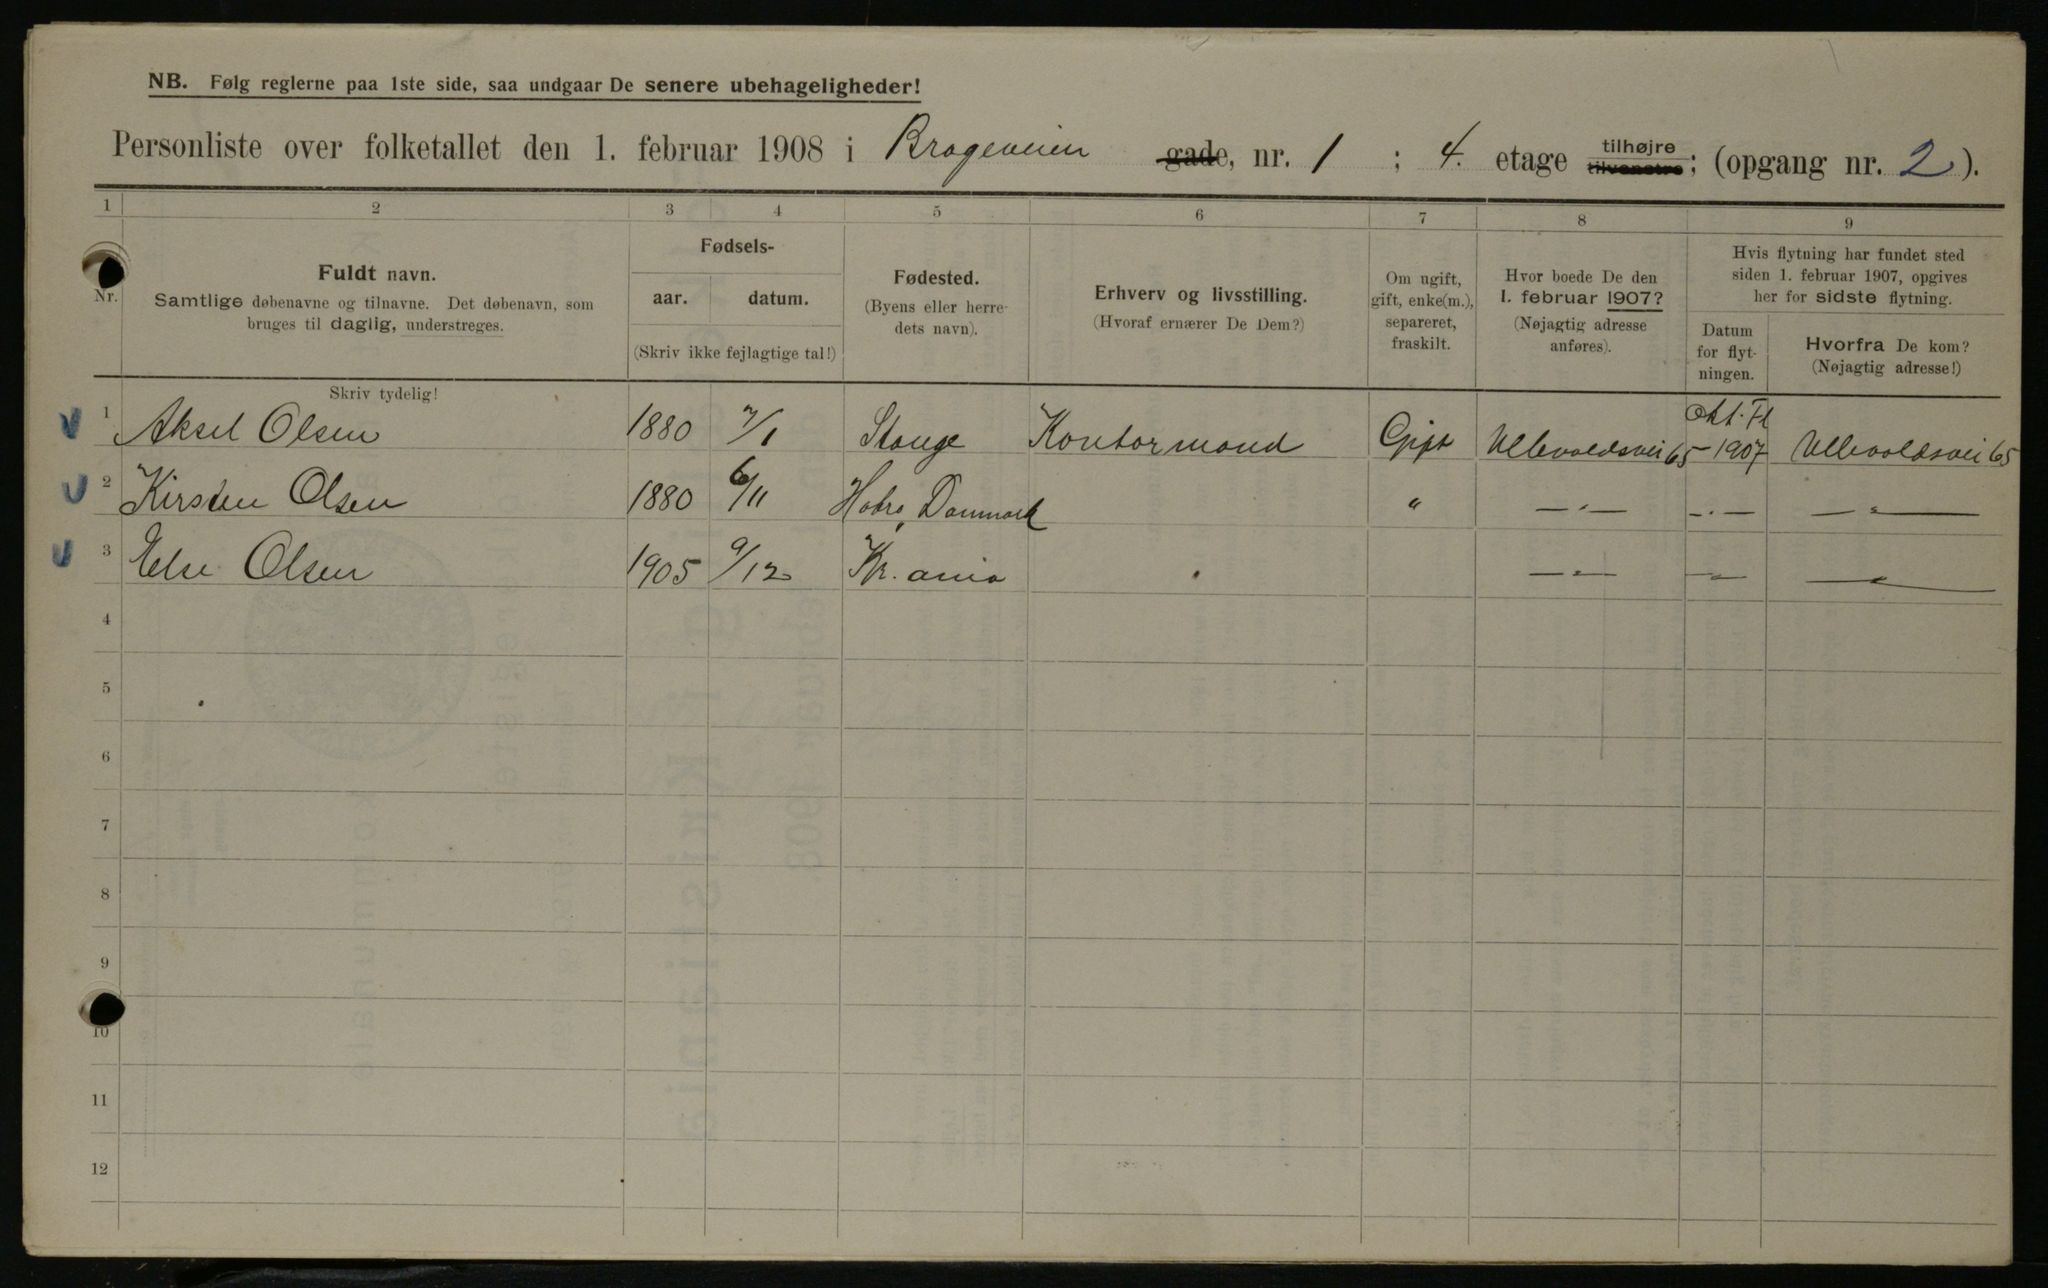 NB. Følg reglerne paa 1ste side, saa undgaar De senere ubehageligheder!
Personliste over folketallet den 1. februar 1908 i Brageveien gade, nr. 1 ; 4. etage tilhøjre tilvenstre; (opgang nr. 2).
1 2 3 4 5 6 7 8 9
Nr.
Fuldt navn.
Samtlige døbenavne og tilnavne. Det døbenavn, som
bruges til daglig, understreges.
Fødsels-
aar. datum.
(Skriv ikke fejlagtige tal!)
Fødested.
(Byens eller herre-
dets navn).
Erhverv og livsstilling.
(Hvoraf ernærer De Dem?)
Om ugift,
gift, enke(m.),
separeret,
fraskilt.
Hvor boede De den
1. februar 1907?
(Nøjagtig adresse
anføres).
Hvis flytning har fundet sted
siden 1. februar 1907, opgives
her for sidste flytning.
Datum
for flyt-
ningen.
Hvorfra De kom?
(Nøjagtig adresse!)
Skriv tydelig!
1 Aksel Olsen 1880 7/1 Stange Kontormand Gift Ullevoldsvei 65 Okt. Fl 1907 Ullevoldsvei 65
2 Kirsten Olsen 1880 6/11 Hobro, Danmark " —"— —"— —"—
3 Else Olsen 1905 9/12 Kr.ania —"— —"— —"—
4
5
6
7
8
9
10
11
12